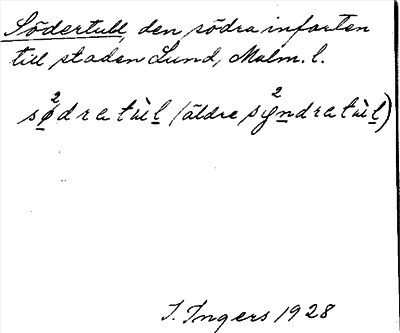 Södertull, den södra infarten
till staden Lund, Malm. l.
sø²dratùl (äldre sy²ndratùl)
I. Ingers 1928